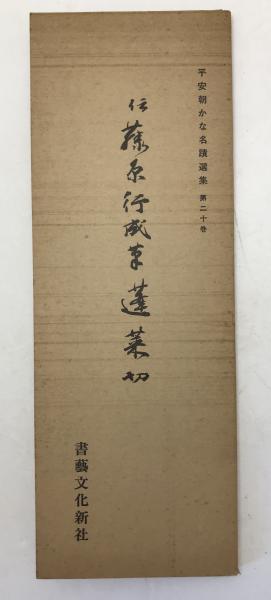 平安朝かな名蹟選集 第二十巻
伝藤原行成筆蓬萊切
書藝文化新社